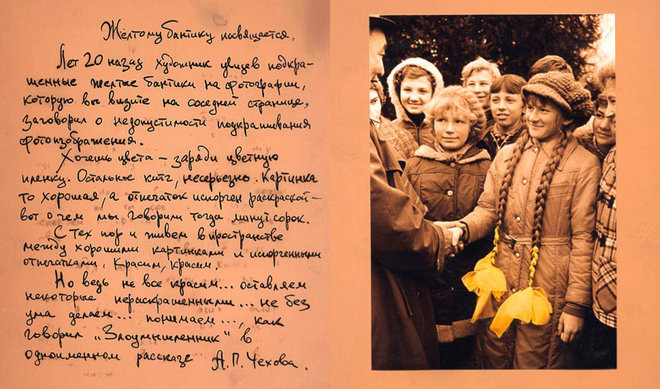 Жёлтому бантику посвящается.
Лет 20 назад художник увидев подкра-
шенные желтые бантики на фотографии,
которую вы видите на соседней странице,
заговорил о недопустимости подкрашивания
фотоизображения.
Хочешь цвета – заряди цветную
пленку. Остальное китч, несерьезно. Картинка
то хорошая, а отпечаток испорчен раскраской –
вот о чем мы говорили тогда минут сорок.
С тех пор и живем в пространстве
между хорошими картинками и испорченными
отпечатками. Красим, красим.
Но ведь не все красим... оставляем
некоторые нераскрашенными... не без
ума делаем... понимаем... как
говорил „Злоумышленник“ в
одноименном рассказе А.П. Чехова.